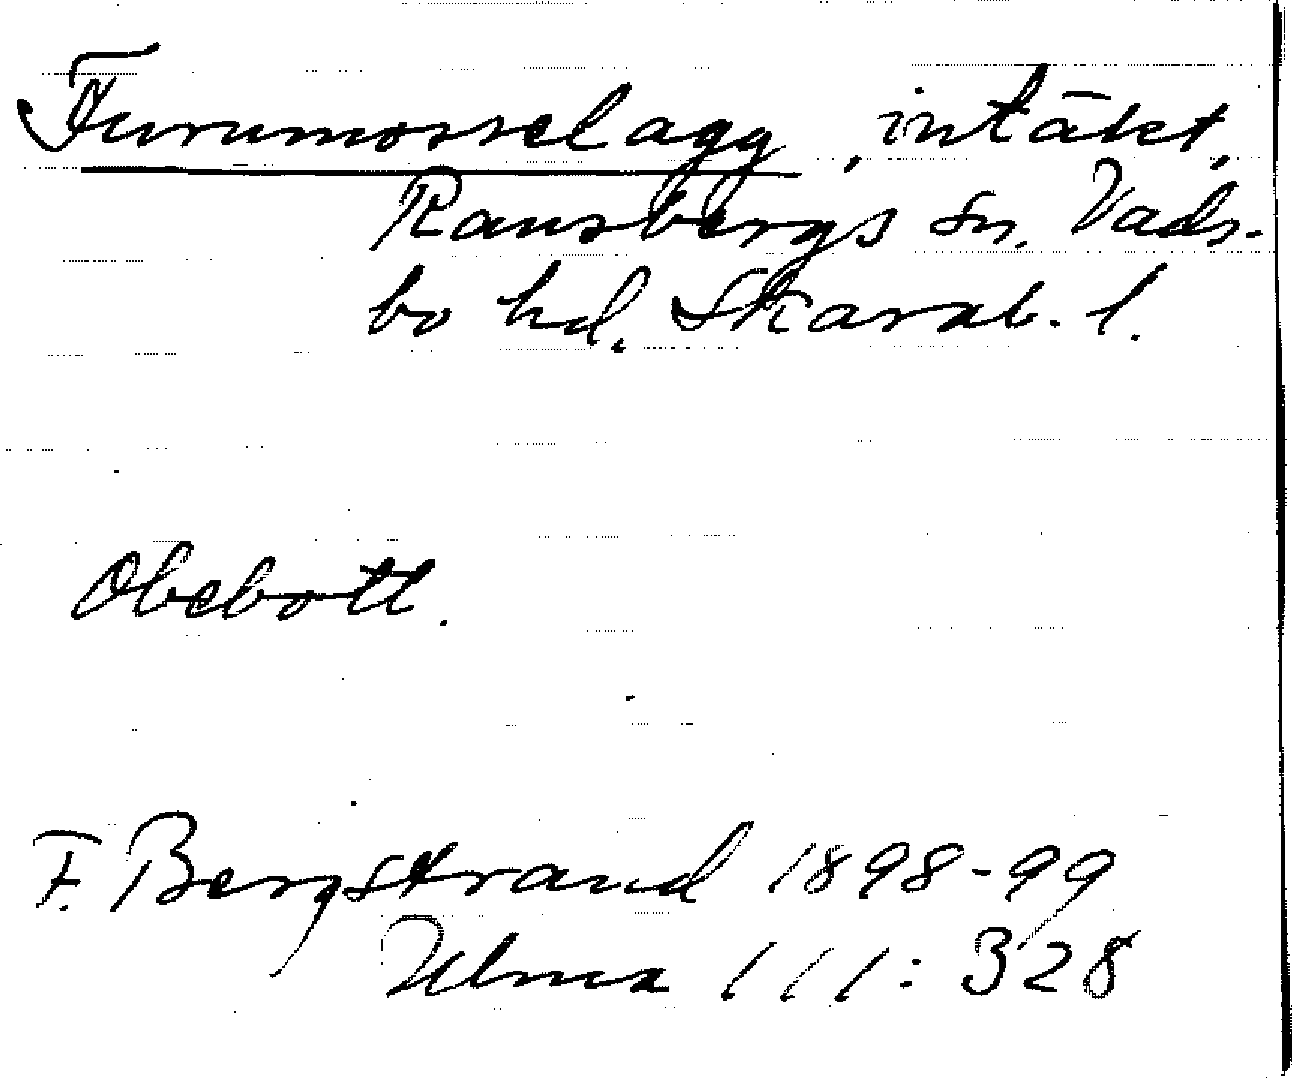 Furumosselagg, intäkt,
Ransbergs sn. Vads-
bo hd. Skarab. l.
Obebott.
F. Bergstrand 1898-99
Ulma 111:328